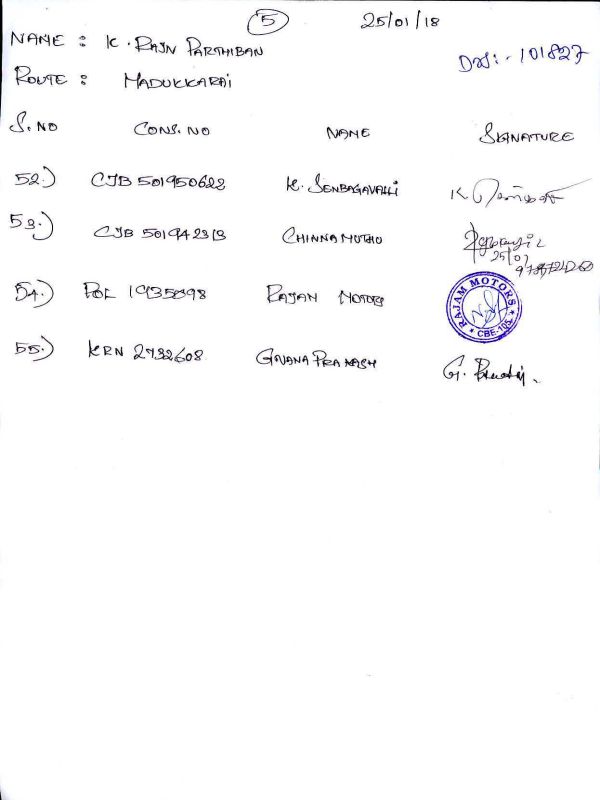 5 25/01/18
NAME : K. RAJN PARTHIBAN
DRS:- 101827
ROUTE : MADUKKARAI
S.NO CONS.NO NAME SIGNATURE
52.) CJB 501950622 K. SENBAGAVALLI K
53.) CJB 501942313 CHINNAMUTHU
25/01
54.) POL 1935898 RAJAN MOTORS RAJAM MOTORS * CBE-105. *
55.) KRN 2732608 GNANA PRAKASH G.